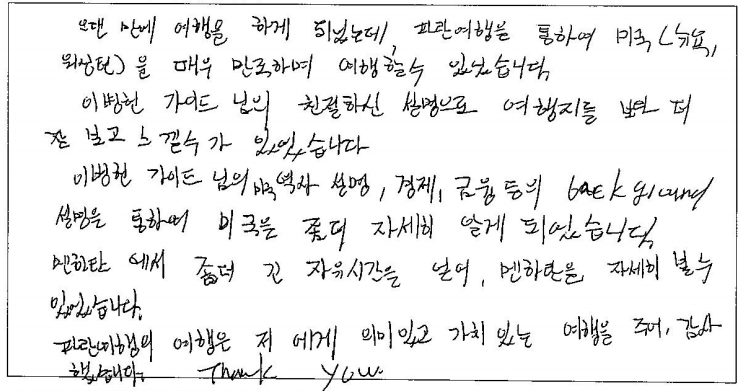 오랜 만에 여행을 하게 되었는데, 파란여행을 통하여 미국(뉴욕,
워싱턴)을 매우 만족하며 여행할수 있었습니다.
이병헌 가이드 님의 친절하신 설명으로 여행지를 보다 더
잘 보고 느낄수 가 있었습니다
이병헌 가이드 님의 미국역사 설명, 경제, 금융 등의 background
설명을 통하여 미국을 좀더 자세히 알게 되었습니다.
맨하탄 에서 좀더 긴 자유시간을 얻어, 맨하탄을 자세히 볼수
있었습니다.
파란여행의 여행은 저 에게 의미있고 가치 있는 여행을 주어, 감사
했습니다. Thank you.